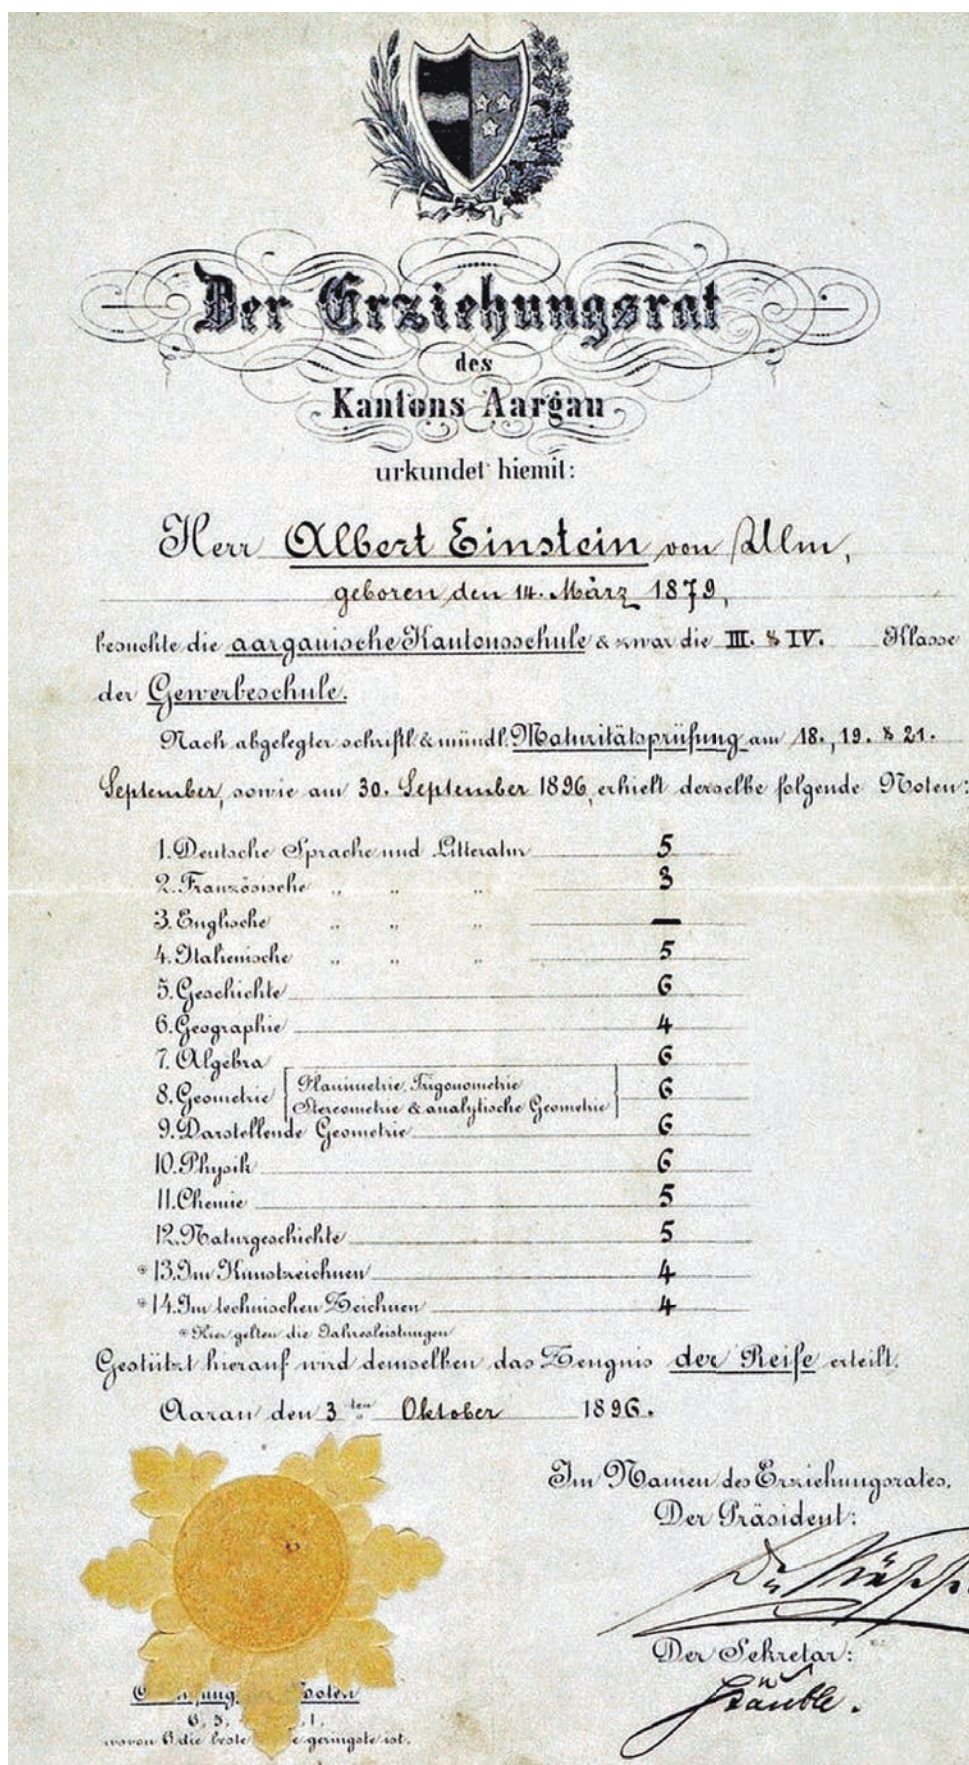 Der Erziehungsrat
des
Kantons Aargau
urkundet hiemit:
Herr Albert Einstein von Ulm,
geboren den 14. März 1879,
besuchte die aargauische Kantonsschule & zwar die III. & IV. Klasse
der Gewerbeschule.
Nach abgelegter schriftl. & mündl. Maturitätsprüfung am 18., 19. & 21.
September, sowie am 30. September 1896, erhielt derselbe folgende Noten:
1. Deutsche Sprache und Litteratur 5
2. Französische „ „ „ 3
3. Englische „ „ „ —
4. Italienische „ „ „ 5
5. Geschichte 6
6. Geographie 4
7. Algebra 6
8. Geometrie { Planimetrie, Trigonometrie
Stereometrie & analytische Geometrie } 6
9. Darstellende Geometrie 6
10. Physik 6
11. Chemie 5
12. Naturgeschichte 5
* 13. Im Kunstzeichnen 4
* 14. Im technischen Zeichnen 4
* Hier gelten die Jahresleistungen
Gestützt hierauf wird demselben das Zeugnis der Reife erteilt.
Aarau den 3ten Oktober 1896.
Im Namen des Erziehungsrates.
Der Präsident:
Der Sekretär:
Stäuble.
Noten
6, 5, 1,
wovon 6 die beste geringste ist.